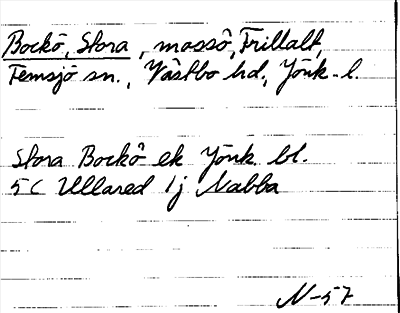 Bockö, Stora, mossö, Frillalt,
Femsjö sn., Västbo hd, Jönk. l.
Stora Bockö ek Jönk. bl.
5C Ullared 1j Nabba
N-57